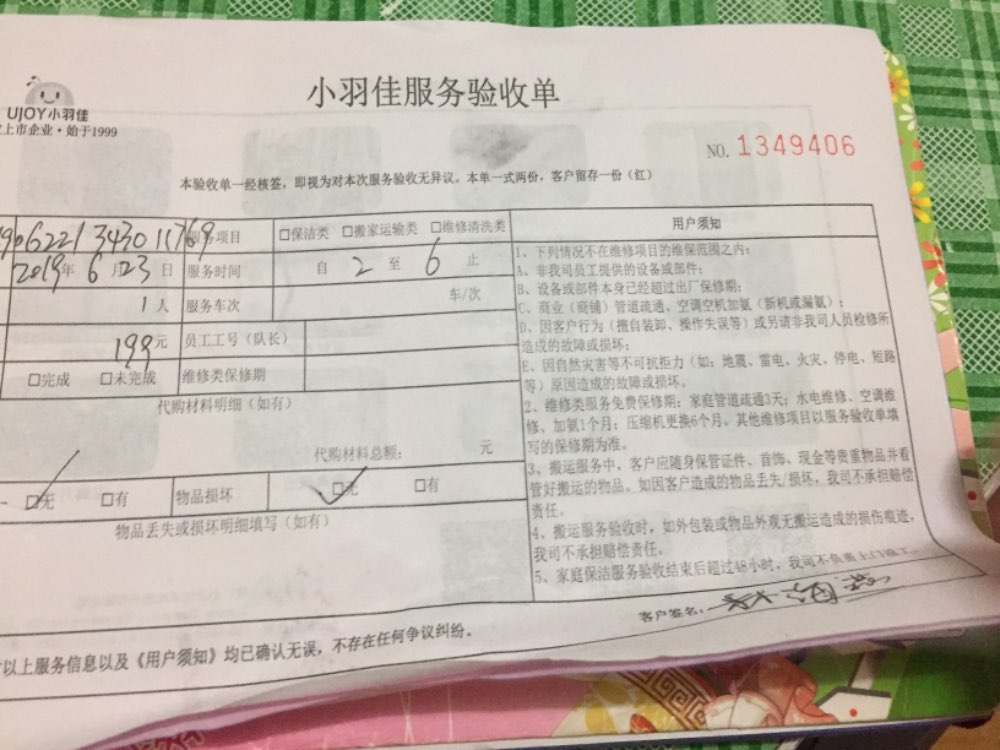 小羽佳服务验收单
UJOY小羽佳
上市企业·始于1999
NO. 1349406
本验收单一经核签，即视为对本次服务验收无异议。本单一式两份，客户留存一份（红）
服务项目 □保洁类 □搬家运输类 □维修清洗类 用户须知
2019年 6月23日 服务时间 自 2 至 6 止
1人 服务车次 车/次
199元 员工工号（队长）
□完成 □未完成 维修类保修期
代购材料明细（如有）
代购材料总额： 元
□无 □有 物品损坏 □无 □有
物品丢失或损坏明细填写（如有）
1、下列情况不在维修项目的维保范围之内：
A、非我司员工提供的设备或部件；
B、设备或部件本身已经超过出厂保修期；
C、商业（商铺）管道疏通、空调空机加氨（新机或漏氨）；
D、因客户行为（擅自装卸、操作失误等）或另请非我司人员检修所
造成的故障或损坏；
E、因自然灾害等不可抗拒力（如：地震、雷电、火灾、停电、短路
等）原因造成的故障或损坏。
2、维修类服务免费保修期：家庭管道疏通3天；水电维修、空调维
修、加氨1个月；压缩机更换6个月。其他维修项目以服务验收单填
写的保修期为准。
3、搬运服务中，客户应随身保管证件、首饰、现金等贵重物品并看
管好搬运的物品。如因客户造成的物品丢失/损坏，我司不承担赔偿
责任。
4、搬运服务验收时，如外包装或物品外观无搬运造成的损伤痕迹，
我司不承担赔偿责任。
5、家庭保洁服务验收结束后超过48小时，我司不负责上门
客户签名：
以上服务信息以及《用户须知》均已确认无误，不存在任何争议纠纷。